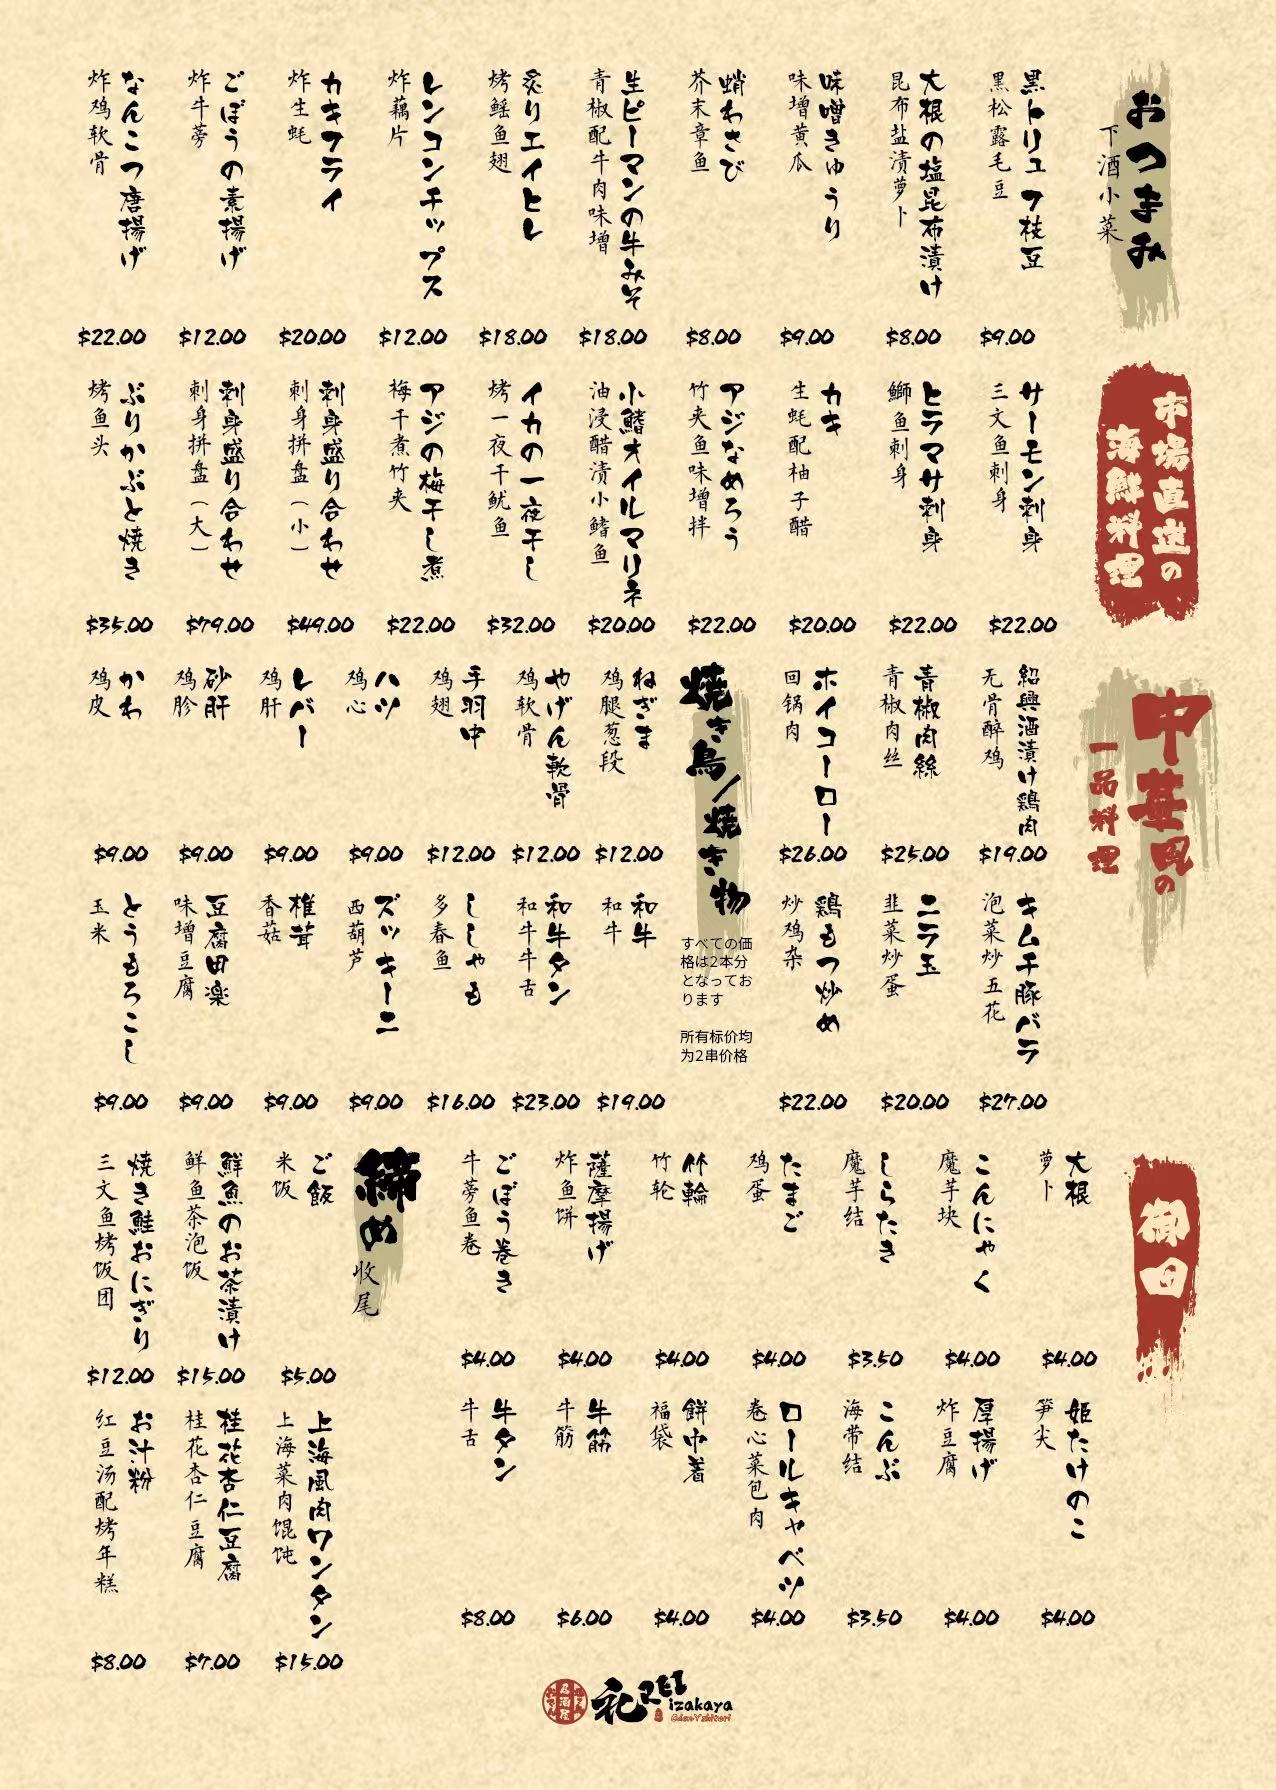 おつまみ
下酒小菜
黒トリュフ枝豆
黑松露毛豆
$9.00
大根の塩昆布漬け
昆布盐渍萝卜
$8.00
味噌きゅうり
味增黄瓜
$9.00
蛸わさび
芥末章鱼
$8.00
生ピーマンの牛みそ
青椒配牛肉味增
$18.00
炙りエイヒレ
烤鳐鱼翅
$18.00
レンコンチップス
炸藕片
$12.00
カキフライ
炸生蚝
$20.00
ごぼうの素揚げ
炸牛蒡
$12.00
なんこつ唐揚げ
炸鸡软骨
$22.00
市場直送の
海鮮料理
サーモン刺身
三文鱼刺身
$22.00
ヒラマサ刺身
鰤鱼刺身
$22.00
カキ
生蚝配柚子醋
$20.00
アジなめろう
竹夹鱼味增拌
$22.00
小鰭オイルマリネ
油浸醋渍小鳍鱼
$20.00
イカの一夜干し
烤一夜干鱿鱼
$32.00
アジの梅干し煮
梅干煮竹夹
$22.00
刺身盛り合わせ
刺身拼盘（小）
$49.00
刺身盛り合わせ
刺身拼盘（大）
$79.00
ぶりかぶと焼き
烤鱼头
$35.00
中華風の
一品料理
紹興酒漬け鶏肉
无骨醉鸡
$19.00
青椒肉絲
青椒肉丝
$25.00
ホイコーロー
回锅肉
$26.00
キムチ豚バラ
泡菜炒五花
$27.00
ニラ玉
韭菜炒蛋
$20.00
鶏もつ炒め
炒鸡杂
$22.00
焼き鳥/焼き物
すべての価
格は2本分
となってお
ります
所有标价均
为2串价格
ねぎま
鸡腿葱段
$12.00
やげん軟骨
鸡软骨
$12.00
手羽中
鸡翅
$12.00
ハツ
鸡心
$9.00
レバー
鸡肝
$9.00
砂肝
鸡胗
$9.00
かわ
鸡皮
$9.00
和牛
和牛
$19.00
和牛タン
和牛牛舌
$23.00
ししゃも
多春鱼
$16.00
ズッキーニ
西葫芦
$9.00
椎茸
香菇
$9.00
豆腐田楽
味增豆腐
$9.00
とうもろこし
玉米
$9.00
御田
大根
萝卜
$4.00
こんにゃく
魔芋块
$4.00
しらたき
魔芋结
$3.50
たまご
鸡蛋
$4.00
竹輪
竹轮
$4.00
薩摩揚げ
炸鱼饼
$4.00
ごぼう巻き
牛蒡鱼卷
$4.00
姫たけのこ
笋尖
$4.00
厚揚げ
炸豆腐
$4.00
こんぶ
海带结
$3.50
ロールキャベツ
卷心菜包肉
$4.00
餅巾着
福袋
$4.00
牛筋
牛筋
$6.00
牛タン
牛舌
$8.00
締め
收尾
ご飯
米饭
$5.00
鮮魚のお茶漬け
鲜鱼茶泡饭
$15.00
焼き鮭おにぎり
三文鱼烤饭团
$12.00
上海風肉ワンタン
上海菜肉馄饨
$15.00
桂花杏仁豆腐
桂花杏仁豆腐
$7.00
お汁粉
红豆汤配烤年糕
$8.00
居酒屋
礼REI
izakaya